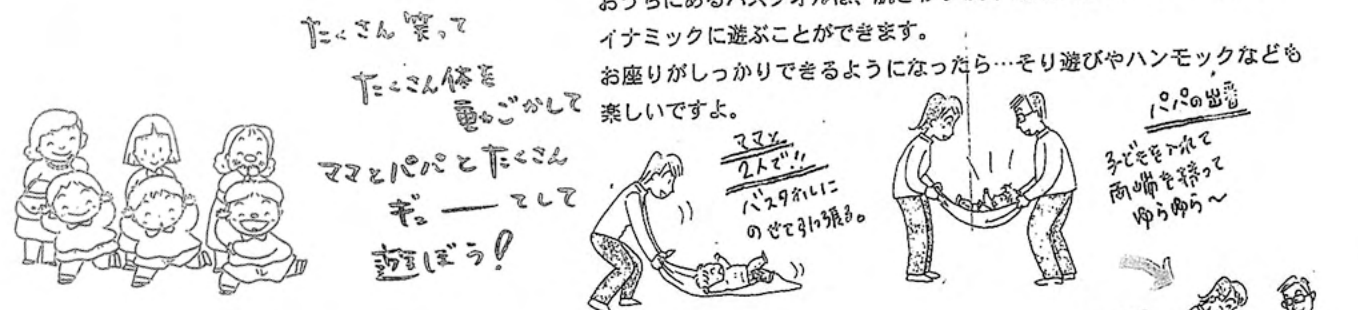 たくさん笑って
たくさん体を
動ごかして
ママとパパとたくさん
ギューーてして
遊ぼう!
おうちにあるバスタオルは、肌
イナミックに遊ぶことができます。
お座りがしっかりできるようになったら…そり遊びやハンモックなども
楽しいですよ。
ママと
2人で!!
バスタオルに
のせて引っ張る。
パパの出番
子どもを入れて
両端を持って
ゆらゆら～